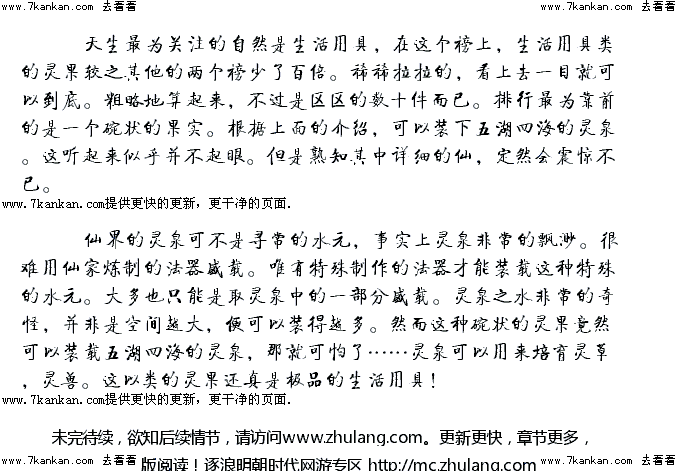 www.7kankan.com 去看看 www.7kankan.com 去看看 www.7kankan.com 去看看
天生最为关注的自然是生活用具，在这个榜上，生活用具类
的灵果较之其他的两个榜少了百倍。稀稀拉拉的，看上去一目就可
以到底。粗略地算起来，不过是区区的数十件而已。排行最为靠前
的是一个碗状的果实。根据上面的介绍，可以装下五湖四海的灵泉
。这听起来似乎并不起眼。但是熟知其中详细的仙，定然会震惊不
已。
www.7kankan.com提供更快的更新，更干净的页面.
仙界的灵泉可不是寻常的水元，事实上灵泉非常的飘渺。很
难用仙家炼制的法器盛载。唯有特殊制作的法器才能装载这种特殊
的水元。大多也只能是取灵泉中的一部分盛载。灵泉之水非常的奇
怪，并非是空间越大，便可以装得越多。然而这种碗状的灵果竟然
可以装载五湖四海的灵泉，那就可怕了……灵泉可以用来培育灵草
，灵兽。这以类的灵果还真是极品的生活用具！
www.7kankan.com提供更快的更新，更干净的页面.
未完待续，欲知后续情节，请访问www.zhulang.com。更新更快，章节更多，
www.7kankan.com 去看看 www.7kankan.com 去看看 www.7kankan.com 去看看
版阅读！逐浪明朝时代网游专区 http://mc.zhulang.com